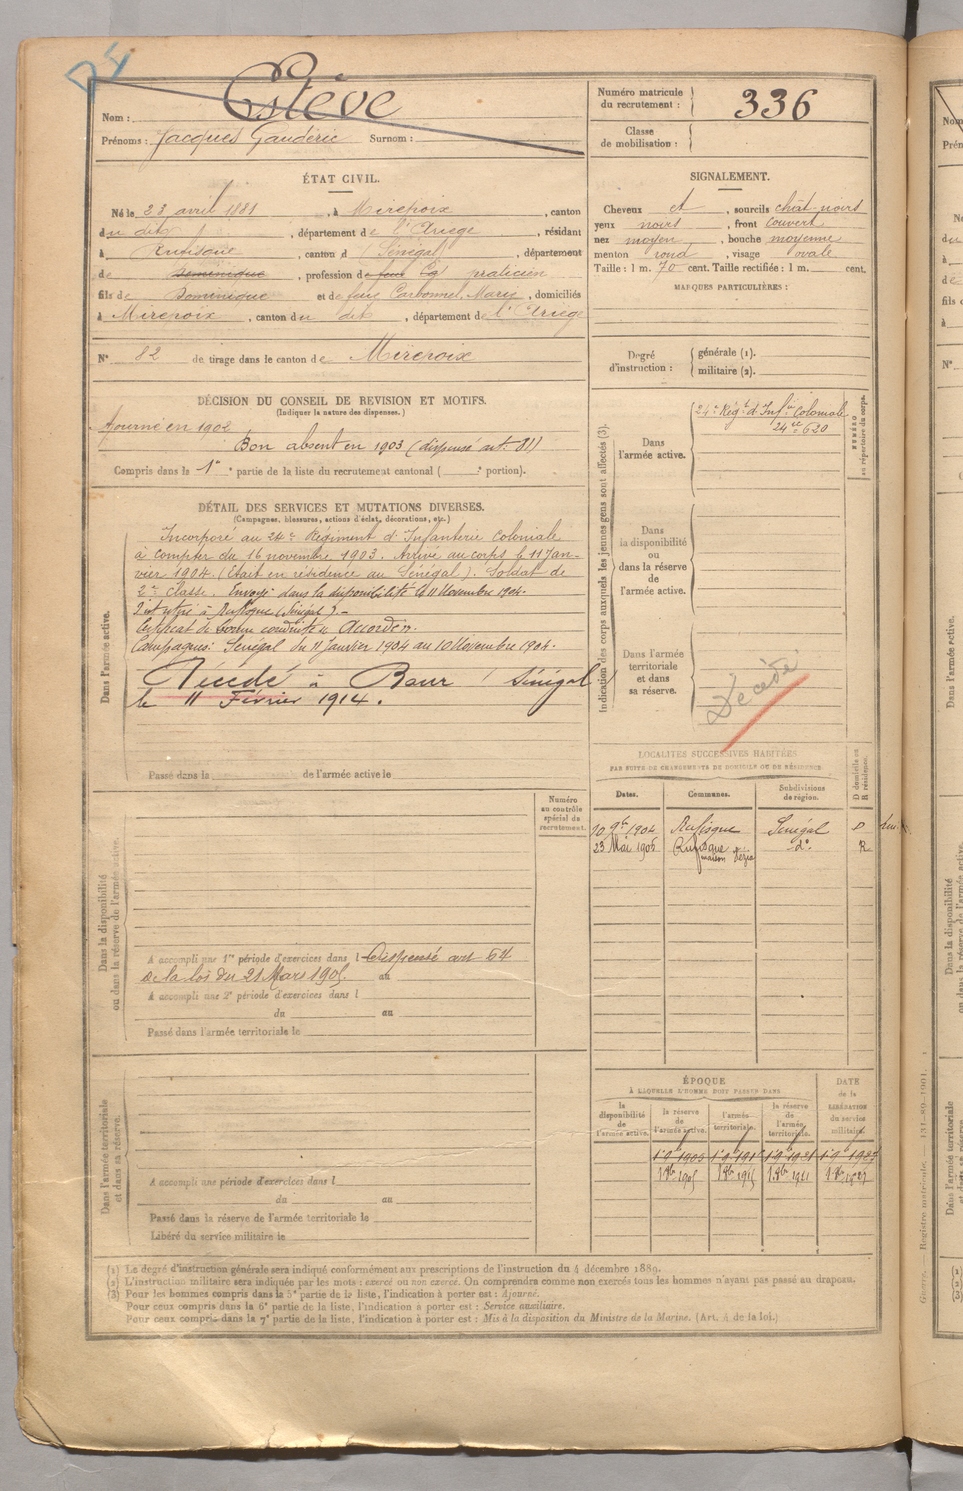 Nom : Estève
Prénoms : Jacques Gaudéric Surnom :
Numéro matricule du recrutement : 336
Classe de mobilisation :
ÉTAT CIVIL.
Né le 23 avril 1881, à Mirepoix, canton
du dit, département de l'Ariège, résidant
à Rufisque, canton d Sénégal, département
de Dominique, profession de praticien
fils de Dominique et de feue Carbonnel, Marie, domiciliés
à Mirepoix, canton du dit, département de l'Ariège
N° 82 de tirage dans le canton de Mirepoix
SIGNALEMENT.
Cheveux et, sourcils chât-noirs
yeux noirs, front couvert
nez moyen, bouche moyenne
menton rond, visage ovale
Taille : 1 m. 70 cent. Taille rectifiée : 1 m. cent.
MARQUES PARTICULIÈRES :
Degré d'instruction : générale (1).
militaire (2).
DÉCISION DU CONSEIL DE REVISION ET MOTIFS.
(Indiquer la nature des dispenses.)
Ajourné en 1902
Bon absent en 1903 (dispensé art. 81)
Compris dans la 1re partie de la liste du recrutement cantonal ( e portion).
DÉTAIL DES SERVICES ET MUTATIONS DIVERSES.
(Campagnes, blessures, actions d'éclat, décorations, etc.)
Dans l'armée active.
Incorporé au 24e Régiment d'Infanterie Coloniale
à compter du 16 novembre 1903. Arrivé au corps le 11 Jan-
vier 1904. (Etait en résidence au Sénégal). Soldat de
2e classe. Envoyé dans la disponibilité le 11 Novembre 1904.
à Rufisque (Sénégal).-
Certificat de bonne conduite « Accordé ».
Campagnes: Sénégal du 11 Janvier 1904 au 10 Novembre 1904.
Décédé à Sénégal
le 11 Février 1914.
Passé dans la de l'armée active le
Indication des corps auxquels les jeunes gens sont affectés (3).
Dans l'armée active.
24e Régt d'Infie Coloniale
620
NUMÉRO au répertoire du corps.
Dans la disponibilité ou dans la réserve de l'armée active.
Dans l'armée territoriale et dans sa réserve.
Décédé
LOCALITÉS SUCCESSIVES HABITÉES
PAR SUITE DE CHANGEMENTS DE DOMICILE OU DE RÉSIDENCE.
Dates. Communes. Subdivisions de région. D domicile ou R résidence.
10 9bre 1904 Rufisque Sénégal D
23 Mai 1905 Rufisque do R
maison
Numéro au contrôle spécial du recrutement.
Dans la disponibilité ou dans la réserve de l'armée active.
A accompli une 1re période d'exercices dans l Dispensé art 64
de la loi du 21 Mars 1905. au
A accompli une 2e période d'exercices dans l
du au
Passé dans l'armée territoriale le
Dans l'armée territoriale et dans sa réserve.
A accompli une période d'exercices dans l
du au
Passé dans la réserve de l'armée territoriale le
Libéré du service militaire le
ÉPOQUE
À LAQUELLE L'HOMME DOIT PASSER DANS
DATE de la LIBÉRATION du service militaire.
la disponibilité de l'armée active. la réserve de l'armée active. l'armée territoriale. la réserve de l'armée territoriale.
(1) Le degré d'instruction générale sera indiqué conformément aux prescriptions de l'instruction du 4 décembre 1889.
(2) L'instruction militaire sera indiquée par les mots : exercé ou non exercé. On comprendra comme non exercés tous les hommes n'ayant pas passé au drapeau.
(3) Pour les hommes compris dans la 5e partie de la liste, l'indication à porter est : Ajourné.
Pour ceux compris dans la 6e partie de la liste, l'indication à porter est : Service auxiliaire.
Pour ceux compris dans la 7e partie de la liste, l'indication à porter est : Mis à la disposition du Ministre de la Marine. (Art. 4 de la loi.)